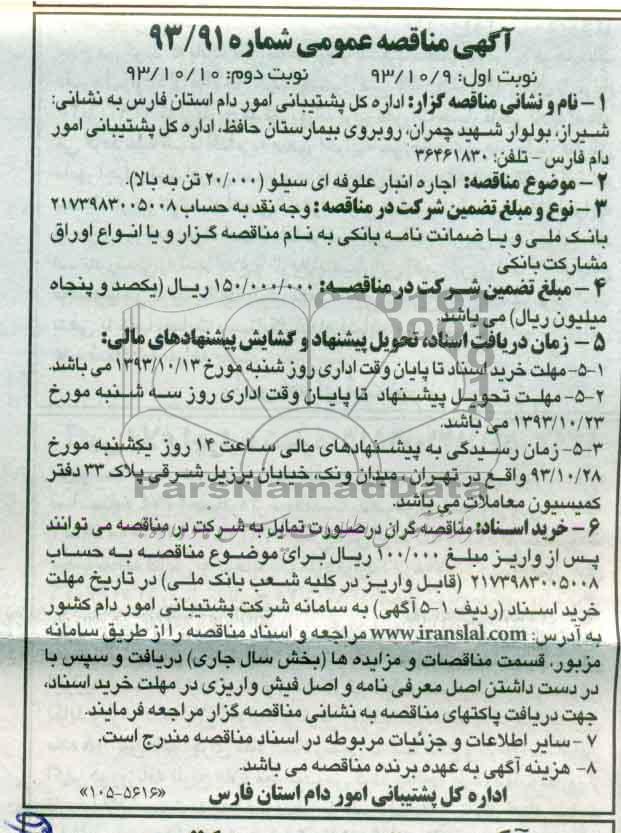 آگهی مناقصه عمومی شماره ۹۳/۹۱
نوبت اول: ۹۳/۱۰/۹ نوبت دوم: ۹۳/۱۰/۱۰
۱ – نام و نشانی مناقصه گزار: اداره کل پشتیبانی امور دام استان فارس به نشانی:
شیراز، بولوار شهید چمران، روبروی بیمارستان حافظ، اداره کل پشتیبانی امور
دام فارس – تلفن: ۳۶۴۶۱۸۳۰
۲ – موضوع مناقصه: اجاره انبار علوفه ای سیلو (۲۰/۰۰۰ تن به بالا).
۳ – نوع و مبلغ تضمین شرکت در مناقصه: وجه نقد به حساب ۲۱۷۳۹۸۳۰۰۵۰۰۸
بانک ملی و یا ضمانت نامه بانکی به نام مناقصه گزار و یا انواع اوراق
مشارکت بانکی
۴ – مبلغ تضمین شرکت در مناقصه: ۱۵۰/۰۰۰/۰۰۰ ریال (یکصد و پنجاه
میلیون ریال) می باشد.
۵ – زمان دریافت اسناد، تحویل پیشنهاد و گشایش پیشنهادهای مالی:
۵-۱- مهلت خرید اسناد تا پایان وقت اداری روز شنبه مورخ ۱۳۹۳/۱۰/۱۳ می باشد.
۵-۲- مهلت تحویل پیشنهاد تا پایان وقت اداری روز سه شنبه مورخ
۱۳۹۳/۱۰/۲۳ می باشد.
۵-۳- زمان رسیدگی به پیشنهادهای مالی ساعت ۱۴ روز یکشنبه مورخ
۹۳/۱۰/۲۸ واقع در تهران، میدان ونک، خیابان برزیل شرقی پلاک ۳۳ دفتر
کمیسیون معاملات می باشد.
۶ – خرید اسناد: مناقصه گران در صورت تمایل به شرکت در مناقصه می توانند
پس از واریز مبلغ ۱۰۰/۰۰۰ ریال برای موضوع مناقصه به حساب
۲۱۷۳۹۸۳۰۰۵۰۰۸ (قابل واریز در کلیه شعب بانک ملی) در تاریخ مهلت
خرید اسناد (ردیف ۱-۵ آگهی) به سامانه شرکت پشتیبانی امور دام کشور
به آدرس: www.iranslal.com مراجعه و اسناد مناقصه را از طریق سامانه
مزبور، قسمت مناقصات و مزایده ها (بخش سال جاری) دریافت و سپس با
در دست داشتن اصل معرفی نامه و اصل فیش واریزی در مهلت خرید اسناد،
جهت دریافت پاکتهای مناقصه به نشانی مناقصه گزار مراجعه فرمایند.
۷- سایر اطلاعات و جزئیات مربوطه در اسناد مناقصه مندرج است.
۸- هزینه آگهی به عهده برنده مناقصه می باشد.
اداره کل پشتیبانی امور دام استان فارس «۱۰۵-۵۶۱۶»
ParsNamadData